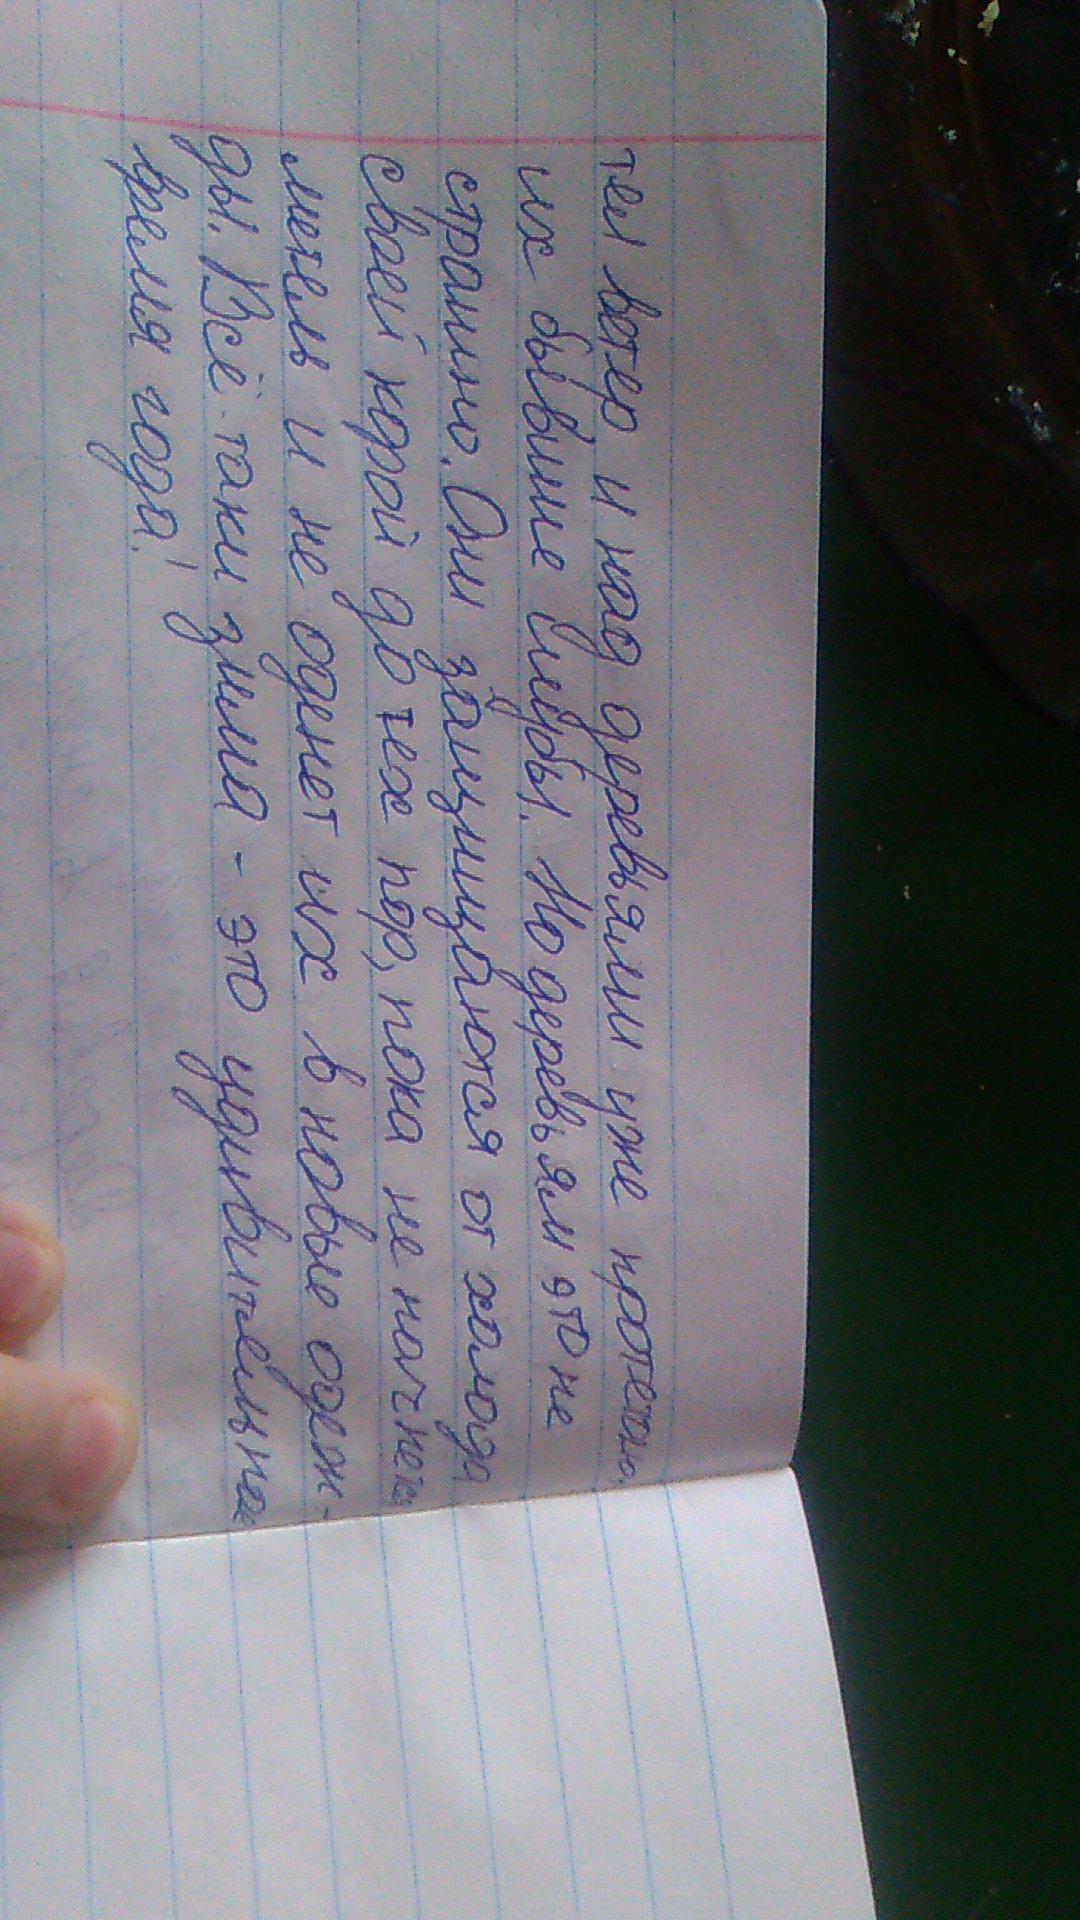 тел ветер и над деревьями уже пролетаю
их бывшие шубы. Но деревьям это не
странно. Они защищаются от холода
своей корой до тех пор, пока не начнется
метель и не оденет их в новые одеж-
ды. Всё-таки зима - это удивительное
время года!